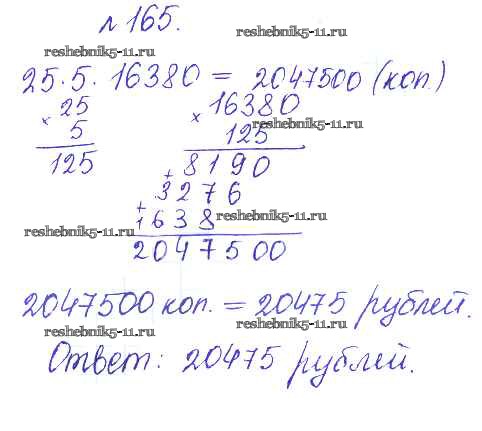 №165.
reshebnik5-11.ru reshebnik5-11.ru
25·5·16380 = 2047500 (коп.)
25 16380
× 5 × 125 reshebnik5-11.ru
125 + 8190
+ 3276
1638 reshebnik5-11.ru
reshebnik5-11.ru
2047500
2047500 коп. = 20475 рублей.
reshebnik5-11.ru reshebnik5-11.ru
Ответ: 20475 рублей.